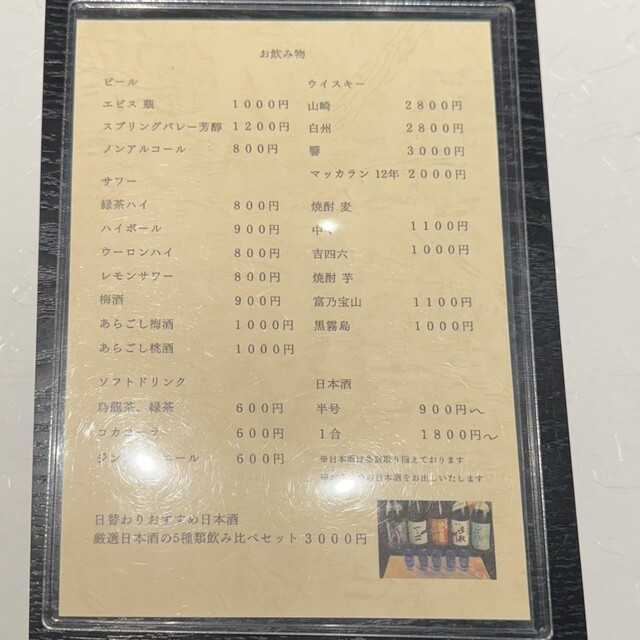 お飲み物
ビール
エビス 瓶 1000円
スプリングバレー芳醇 1200円
ノンアルコール 800円
サワー
緑茶ハイ 800円
ハイボール 900円
ウーロンハイ 800円
レモンサワー 800円
梅酒 900円
あらごし梅酒 1000円
あらごし桃酒 1000円
ソフトドリンク
烏龍茶、緑茶 600円
コカコーラ 600円
600円
ウイスキー
山崎 2800円
白州 2800円
響 3000円
マッカラン 12年 2000円
焼酎 麦
中々 1100円
吉四六 1000円
焼酎 芋
富乃宝山 1100円
黒霧島 1000円
日本酒
半号 900円～
1合 1800円～
※日本酒は多数取り揃えております
の日本酒をお出しいたします
日替わりおすすめ日本酒
厳選日本酒の5種類飲み比べセット 3000円